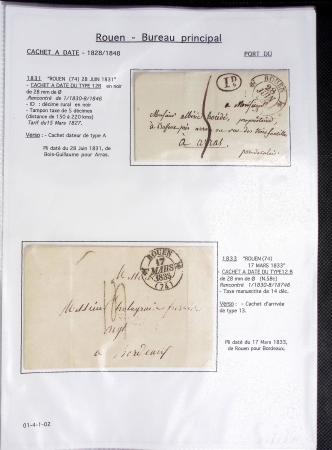 Rouen - Bureau principal
CACHET A DATE - 1828/1848
PORT DU
1831 "ROUEN (74) 28 JUIN 1831"
- CACHET A DATE DU TYPE 12B en noir
de 28 mm de Ø
Rencontré de 1/1830-8/1846
- ID : décime rural en noir
- Tampon taxe de 5 décimes
(distance de 150 à 220 kms)
Tarif du 15 Mars 1827.
Verso : - Cachet dateur de type A
Pli daté du 28 Juin 1831, de
Bois-Guillaume pour Arras.
1D
ROUEN
28
JUIN
a Monsieur
Monsieur
propriétaire,
à arras
ROUEN
17
MARS
1833
(74)
Monsieur
a Bordeaux
1833 "ROUEN (74)
17 MARS 1833"
- CACHET A DATE DU TYPE 12B
de 28 mm de Ø (N.58c)
Rencontré 1/1830-8/18746
- Taxe manuscrite de 14 déc.
Verso : - Cachet d'arrivée
de type 13.
Pli daté du 17 Mars 1833,
de Rouen pour Bordeaux.
01-4-1-02